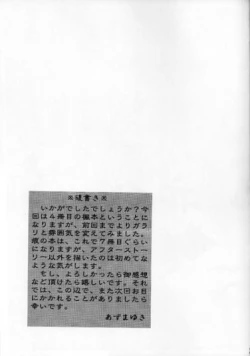 ※後書き※
いかがでしたでしょうか?今
回は4冊目の 本ということに
なりますが、前回までよりガラ
リと雰囲気を変えてみました。
痕の本は、これで7冊目くらい
になりますが、アフターストー
リー以外を描いたのは初めてな
ような気がします。
もし、よろしかったら御感想
など頂けたら嬉しいです。それ
では、この辺で、また次回お目
にかかれることがありましたら
幸いです。
あずまゆき